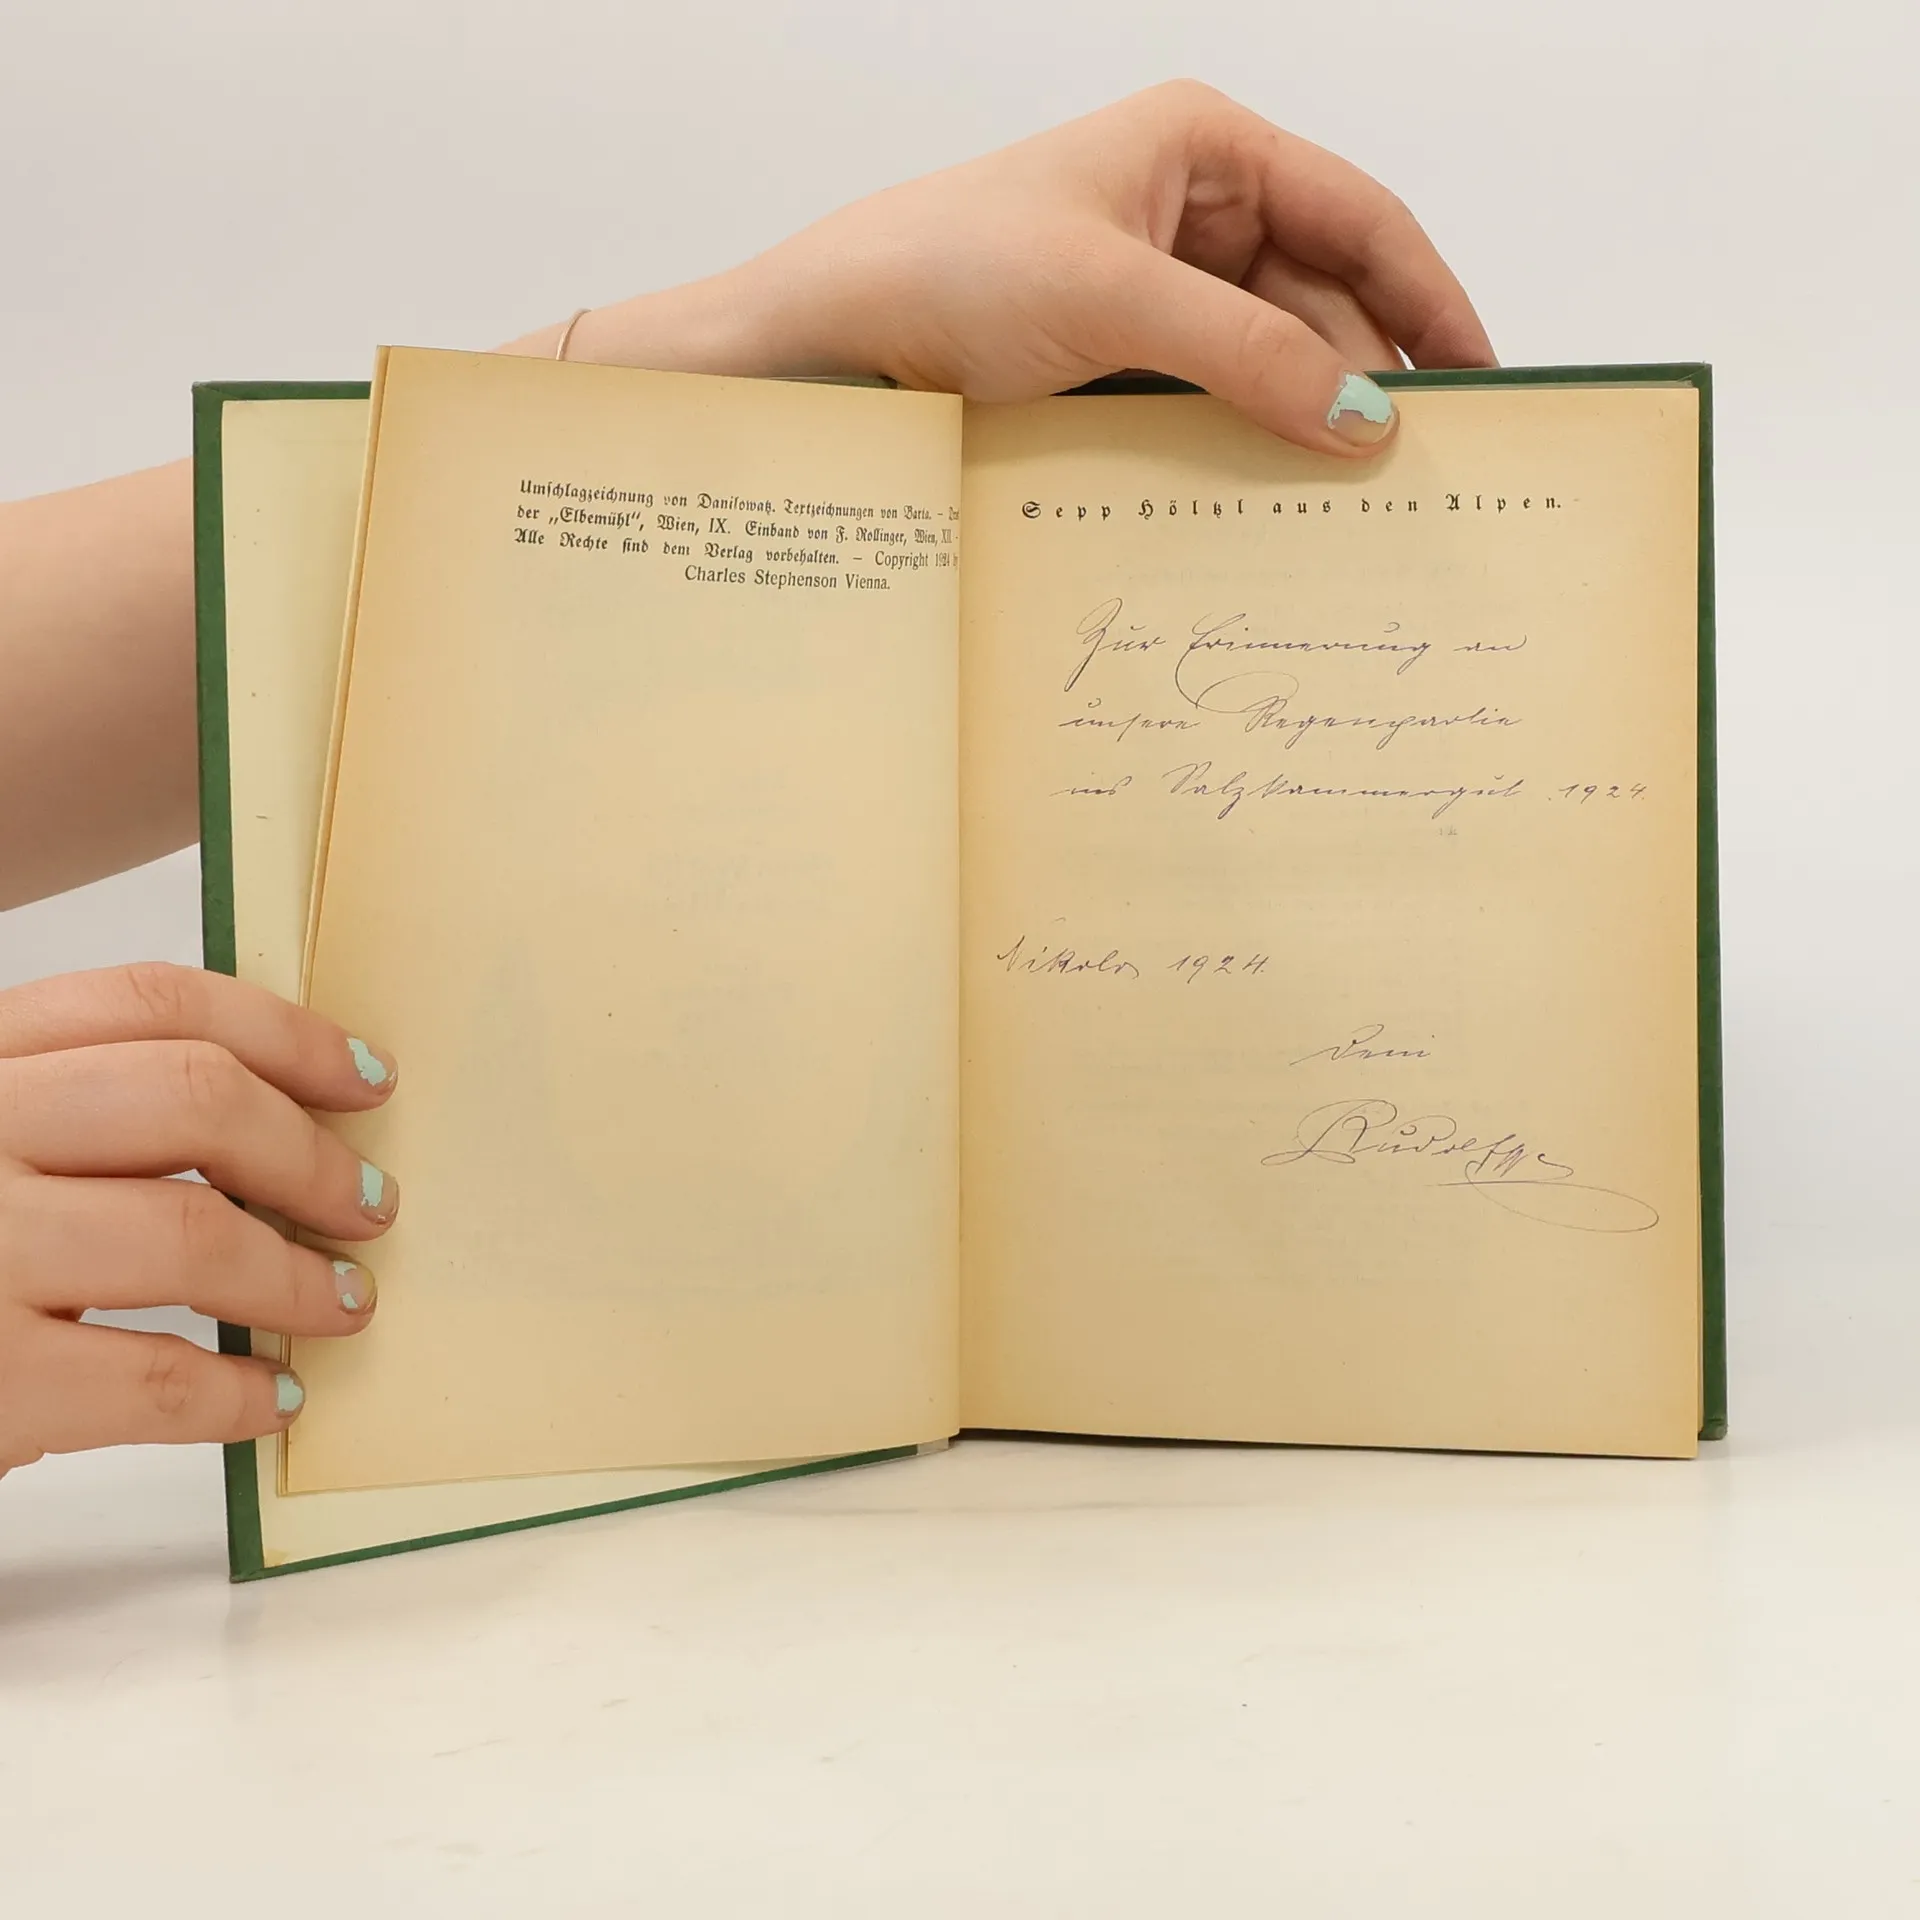 Umschlagzeichnung von Danilowatz. Textzeichnungen von Barta. –
der „Elbemühl“, Wien, IX. Einband von F. Rollinger, Wien, XII. –
Alle Rechte sind dem Verlag vorbehalten. – Copyright 1924 by
Charles Stephenson Vienna.
Sepp Höltzl aus den Alpen.
Zur Erinnerung an
unsere Regenpartie
ins Salzkammergut 1924.
Nikolo 1924.
Dein
Rudolf